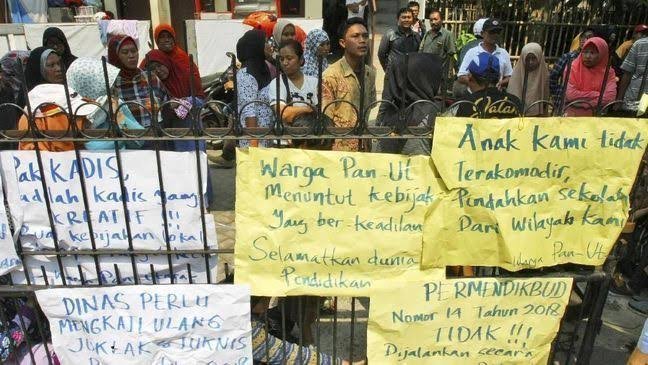 Pak KADIS,
adlah kadic yang
KREATIF !!!
Buat kebijahan lokal
Warga Pan-Ut
Menuntut kebijak
Yang ber-keadilan
Selamatkan dunia
Pendidikan
Anak kami tidak
Terakomodir,
Pindahkan sekolah
Dari Wilayah Kami
Warga Pan-Ut
DINAS PERLU
MENGKAJI ULANG
JUKLAK & JUKNIS
PERMENDIKBUD
Nomor 14 Tahun 2018
TIDAK !!!
Dijalankan secara